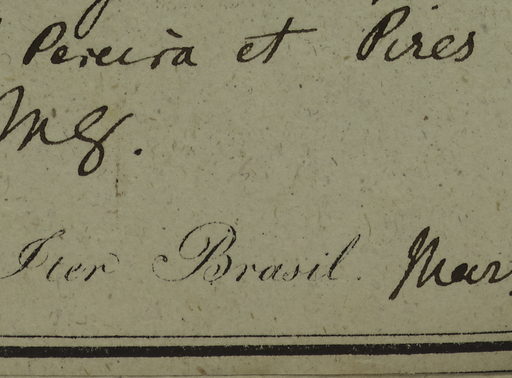 Pereira et Pires
Mg.
Iter Brasil. Mar